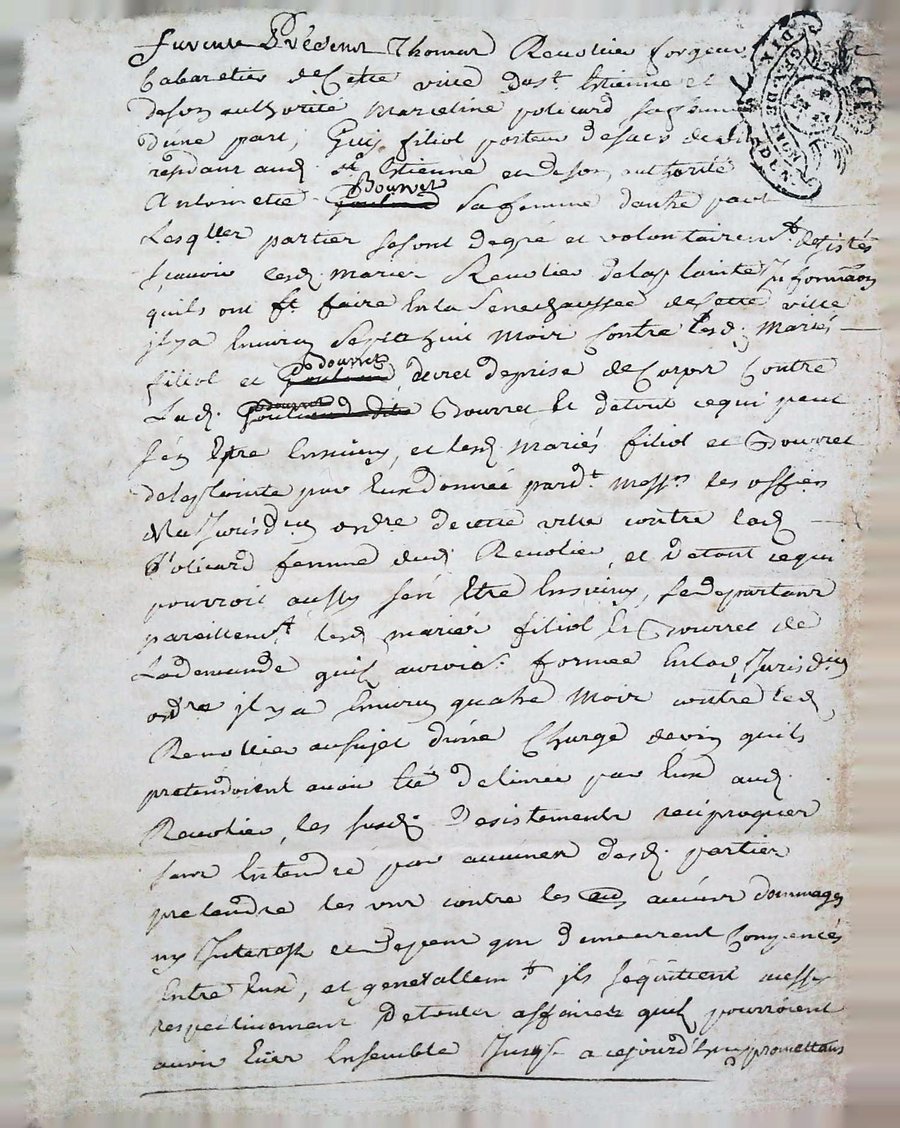 furent Présents Thomas Revolier forgeur
Cabaretier de Cette ville de St. Etienne et
de son authorité Marceline policard sa femme
d'une part, Guy filiol porteur de sacs
residant aud. St Etienne et de son authorité
Antoinette Bourret sa femme d'autre part
Lesqlles parties se sont de gré et volontairemt. desistés
sçavoir lesd. mariés Revolier de la plainte Informaõn
quils ont ft. faire En la Senechaussée de Cette ville
il y a Environ Sept a huit Mois Contre lesd. Mariés
filiol et Bourret, decret de prise de Corps Contre
Lad. Bourret Et de tout ce qui peut
s'en Etre Ensuivy, et lesd. mariés filiol et Bourret
de la plainte par Eux donnée pardt. Messrs les offiers
de la Jurisdon ordre de cette ville contre lad.
Policard femme dud. Revolier, et de tout ce qui
pourroit aussy s'en Etre Ensuivy, se departant
pareillemt. lesd. mariés filiol Et Bourret de
La demande quils avoint formée En lad. Jurisdon
ordre il y a Environ quatre Mois contre led.
Revollier au sujet d'une Charge de vin quils
pretendoient avoir Eté delivrée par Eux aud.
Revolier, les susd. desistements reciproques
sans Entendre par aucunes desd. parties
pretendre les uns contre les aucuns dommages
ny Interests et depens qui demeurent Compencés
Entre Eux, et generallemt. ils se quittent aussy
respectivement de toutes affaires quils pourroient
avoir Eües Ensemble Jusqs. a cejourd'huy promettans